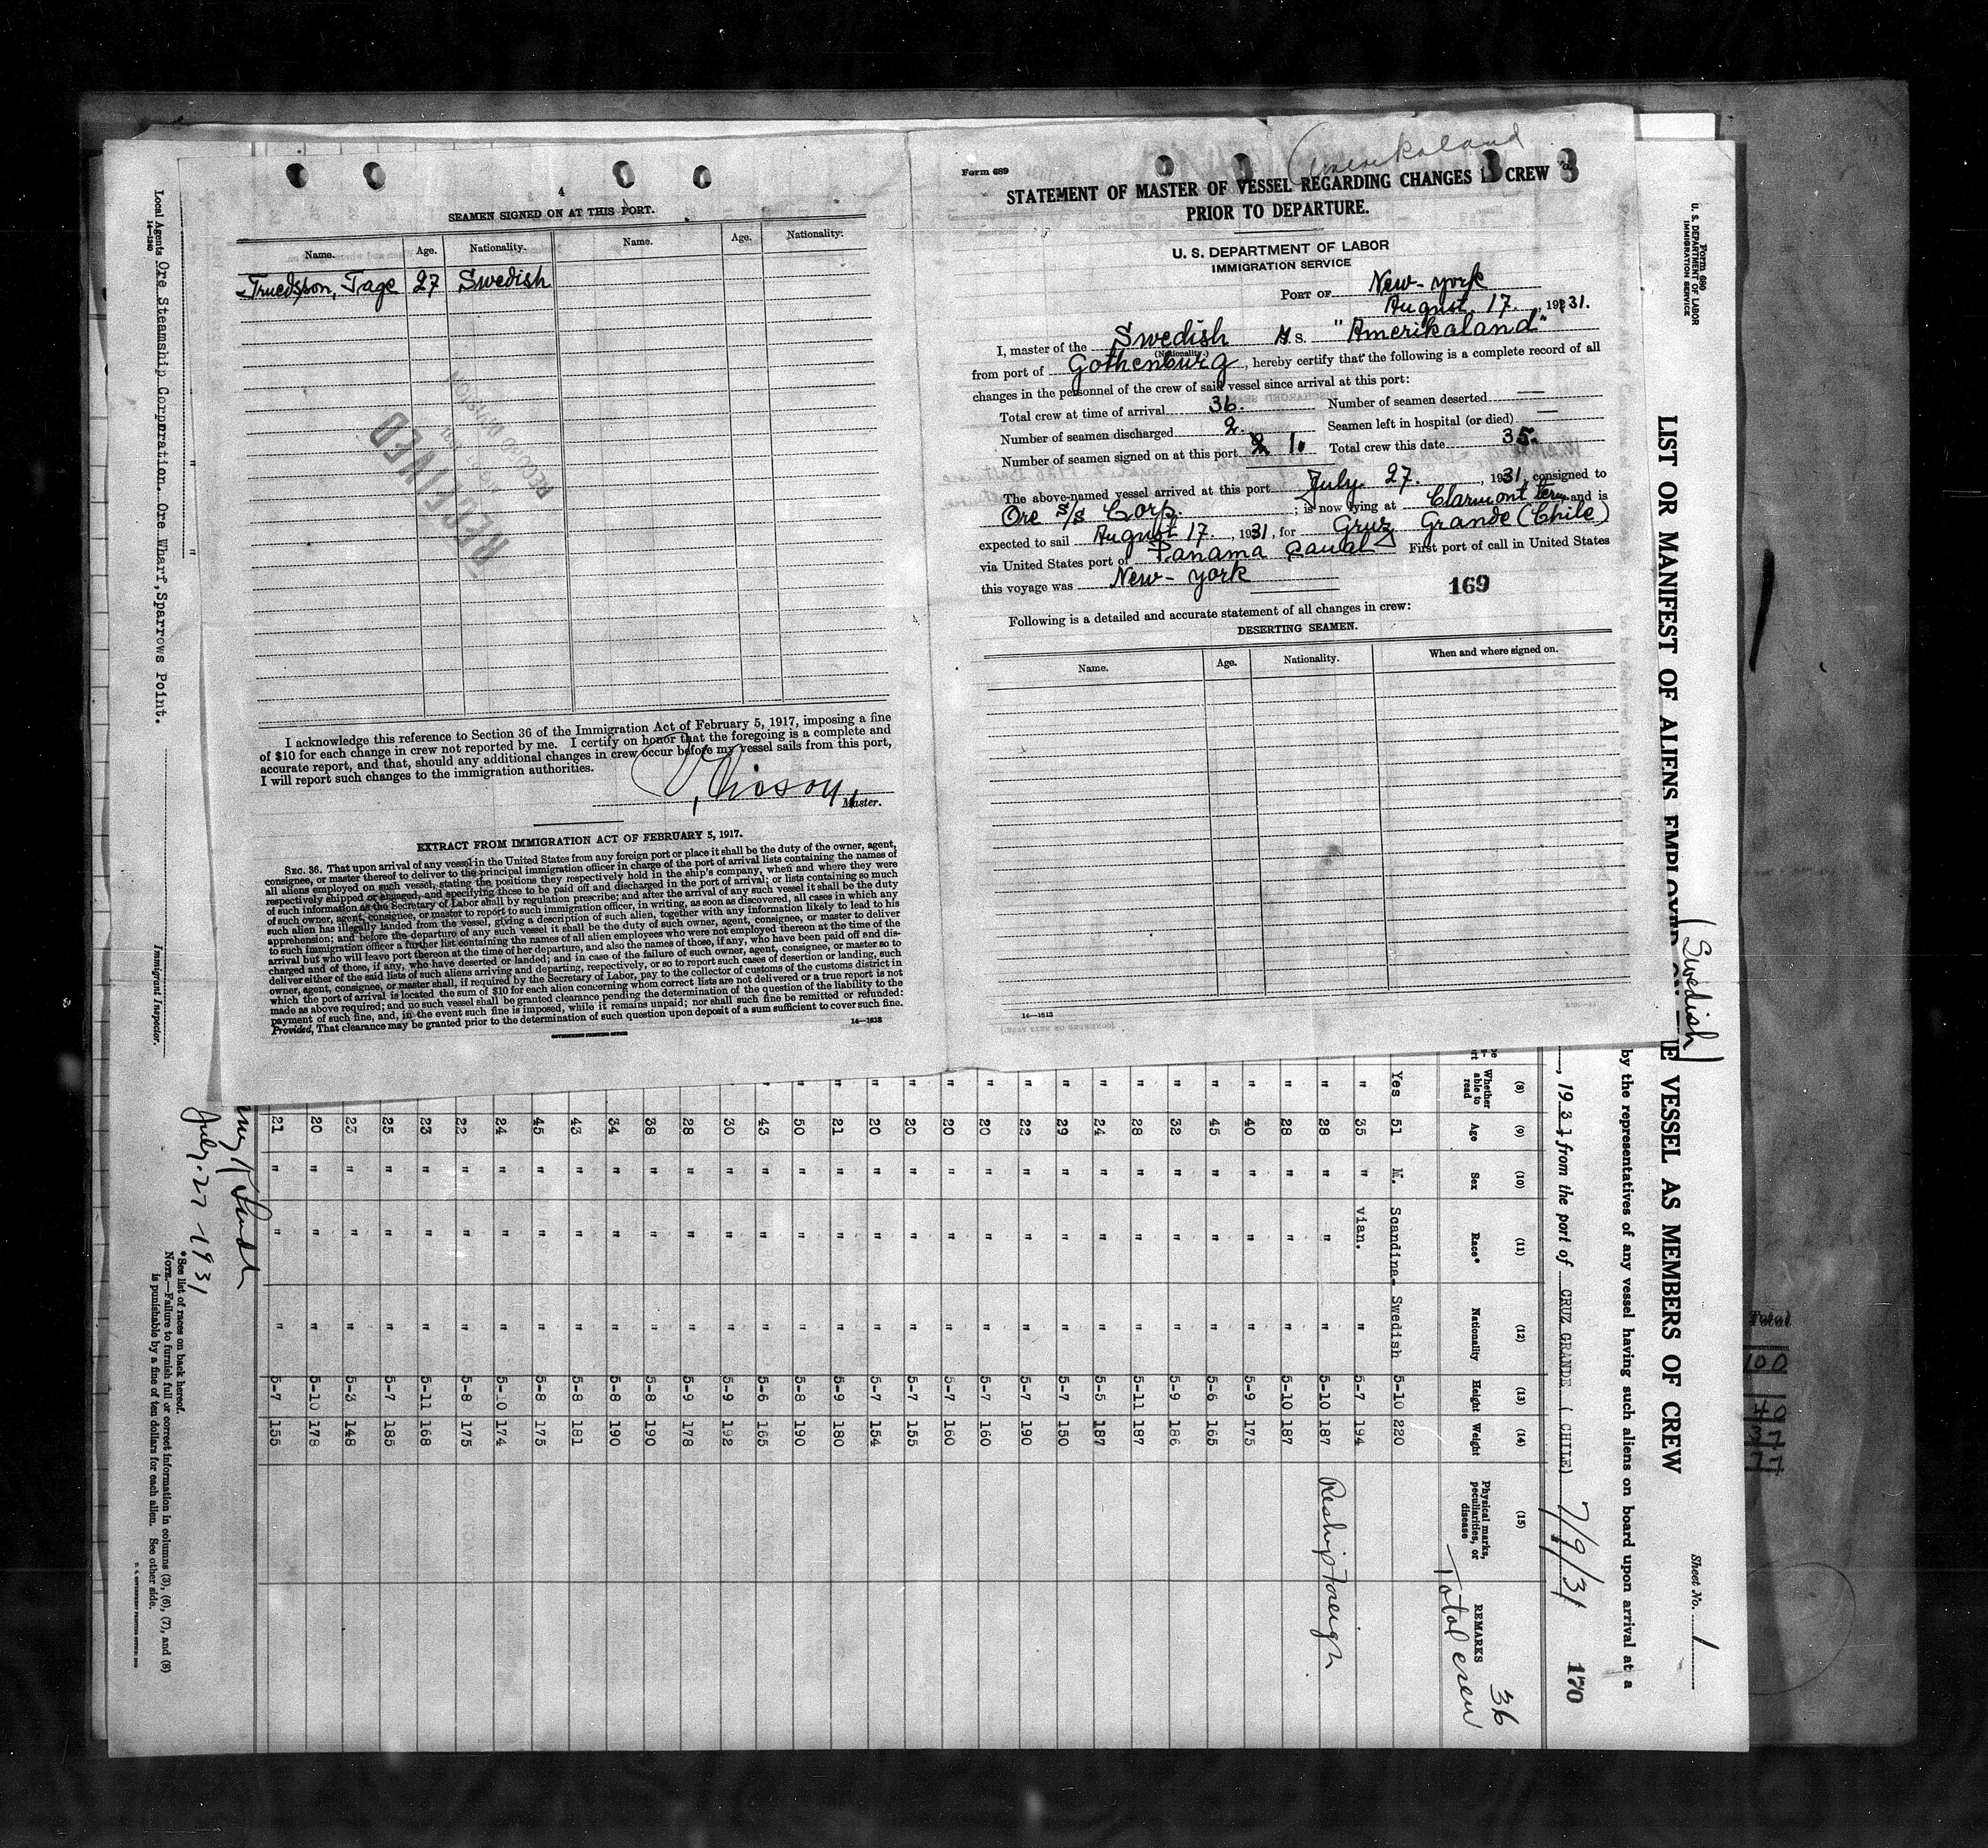 4
SEAMEN SIGNED ON AT THIS PORT.
Name. Age. Nationality. Name. Age. Nationality.
Truedsson, Tage 27 Swedish
RECEIVED
RECORD DIVISION
I acknowledge this reference to Section 36 of the Immigration Act of February 5, 1917, imposing a fine
of $10 for each change in crew not reported by me. I certify on honor that the foregoing is a complete and
accurate report, and that, should any additional changes in crew occur before my vessel sails from this port,
I will report such changes to the immigration authorities.
Master.
EXTRACT FROM IMMIGRATION ACT OF FEBRUARY 5, 1917.
SEC. 36. That upon arrival of any vessel in the United States from any foreign port or place it shall be the duty of the owner, agent,
consignee, or master thereof to deliver to the principal immigration officer in charge of the port of arrival lists containing the names of
all aliens employed on such vessel, stating the positions they respectively hold in the ship's company, when and where they were
respectively shipped or engaged, and specifying those to be paid off and discharged in the port of arrival; or lists containing so much
of such information as the Secretary of Labor shall by regulation prescribe; and after the arrival of any such vessel it shall be the duty
of such owner, agent, consignee, or master to report to such immigration officer, in writing, as soon as discovered, all cases in which any
such alien has illegally landed from the vessel, giving a description of such alien, together with any information likely to lead to his
apprehension; and before the departure of any such vessel it shall be the duty of such owner, agent, consignee, or master to deliver
to such immigration officer a further list containing the names of all alien employees who were not employed thereon at the time of the
arrival but who will leave port thereon at the time of her departure, and also the names of those, if any, who have been paid off and dis-
charged and of those, if any, who have deserted or landed; and in case of the failure of such owner, agent, consignee, or master so to
deliver either of the said lists of such aliens arriving and departing, respectively, or so to report such cases of desertion or landing, such
owner, agent, consignee, or master shall, if required by the Secretary of Labor, pay to the collector of customs of the customs district in
which the port of arrival is located the sum of $10 for each alien concerning whom correct lists are not delivered or a true report is not
made as above required; and no such vessel shall be granted clearance pending the determination of the question of the liability to the
payment of such fine, and, in the event such fine is imposed, while it remains unpaid; nor shall such fine be remitted or refunded:
Provided, That clearance may be granted prior to the determination of such question upon deposit of a sum sufficient to cover such fine.
GOVERNMENT PRINTING OFFICE
14—1512
Amerikaland
Form 689
STATEMENT OF MASTER OF VESSEL REGARDING CHANGES IN CREW
PRIOR TO DEPARTURE.
U. S. DEPARTMENT OF LABOR
IMMIGRATION SERVICE
PORT OF New-york
August. 17., 1931.
I, master of the Swedish M. S. "Amerikaland"
(Nationality.)
from port of Gothenburg, hereby certify that the following is a complete record of all
changes in the personnel of the crew of said vessel since arrival at this port:
Total crew at time of arrival 36. Number of seamen deserted —
Number of seamen discharged 2. Seamen left in hospital (or died) —
Number of seamen signed on at this port 2 1. Total crew this date 35.
The above-named vessel arrived at this port July. 27., 1931, consigned to
Ore s/s Corp.; is now lying at Clarmont term and is
expected to sail August 17., 1931, for Gruz Grande (Chile)
via United States port of Panama Canal First port of call in United States
this voyage was New-york
169
Following is a detailed and accurate statement of all changes in crew:
DESERTING SEAMEN.
Name. Age. Nationality. When and where signed on.
14—1512
Form 680
U. S. DEPARTMENT OF LABOR
IMMIGRATION SERVICE
LIST OR MANIFEST OF ALIENS EMPLOYED ON THE VESSEL AS MEMBERS OF CREW
(Swedish)
Sheet No. 1
by the representatives of any vessel having such aliens on board upon arrival at a
, 1931, from the port of CRUZ GRANDE ( CHILE) 7/9/31 170
(8) (9) (10) (11) (12) (13) (14) (15)
Whether able to read Age Sex Race* Nationality Height Weight Physical marks, peculiarities, or disease REMARKS
36
Total crew
Yes 51 M. Scandina- Swedish 5-10 220
" 35 " vian. " 5-7 194
" 28 " " " 5-10 187 Reship Foreign
" 28 " " " 5-10 187
" 40 " " " 5-9 175
" 45 " " " 5-6 165
" 32 " " " 5-9 186
" 28 " " " 5-11 187
" 24 " " " 5-5 187
" 29 " " " 5-7 150
" 22 " " " 5-7 190
" 20 " " " 5-7 160
" 20 " " " 5-7 160
" 20 " " " 5-7 155
" 20 " " " 5-7 154
" 21 " " " 5-9 180
" 50 " " " 5-8 190
" 43 " " " 5-6 165
" 30 " " " 5-9 192
" 28 " " " 5-9 178
" 38 " " " 5-8 190
" 34 " " " 5-8 190
" 43 " " " 5-8 181
" 45 " " " 5-8 175
" 24 " " " 5-10 174
" 22 " " " 5-8 175
" 23 " " " 5-11 168
" 25 " " " 5-7 185
" 23 " " " 5-3 148
" 20 " " " 5-10 178
21 " " " 5-7 155
July-27-1931
*See list of races on back hereof.
NOTE.—Failure to furnish full or correct information in columns (3), (6), (7), and (8)
is punishable by a fine of ten dollars for each alien. See other side.
Local Agents Ore Steamship Corporation. Ore Wharf, Sparrows Point.
14—1240
Immigrant Inspector.
Total
100
40
37
77